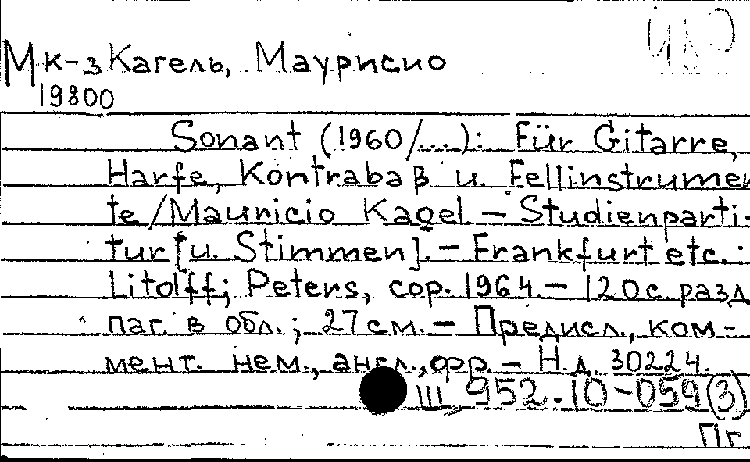 Мк-з Кагель, Маурисио
19800
Sonant (1960/....): Für Gitarre,
Harfe, Kontrabaß u. Fellinstrumen
te/Mauricio Kagel. – Studienparti-
tur [u. Stimmen]. – Frankfurt etc.:
Litolff; Peters, cop. 1964. – 120 с. разд
паг. в обл.; 27 см. – Предисл., ком-
мент. нем., англ., фр. – Н.д. 30224.
III 952.10-059(3)
Пг